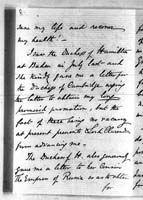 save my life and recover
my health! —
I saw the Duchess of Hamilton
at Baden in July last and
she kindly gave me a letter for
the Duchess of Cambridge asking
the latter to obtain my long
promised promotion, but the
fact of there being no vacancy
at present prevents Lord Clarendon
from advancing me. —
The Duchess of H. also generously
gave me a letter to her Cousin
the Empress of Russia so as to obtain
for